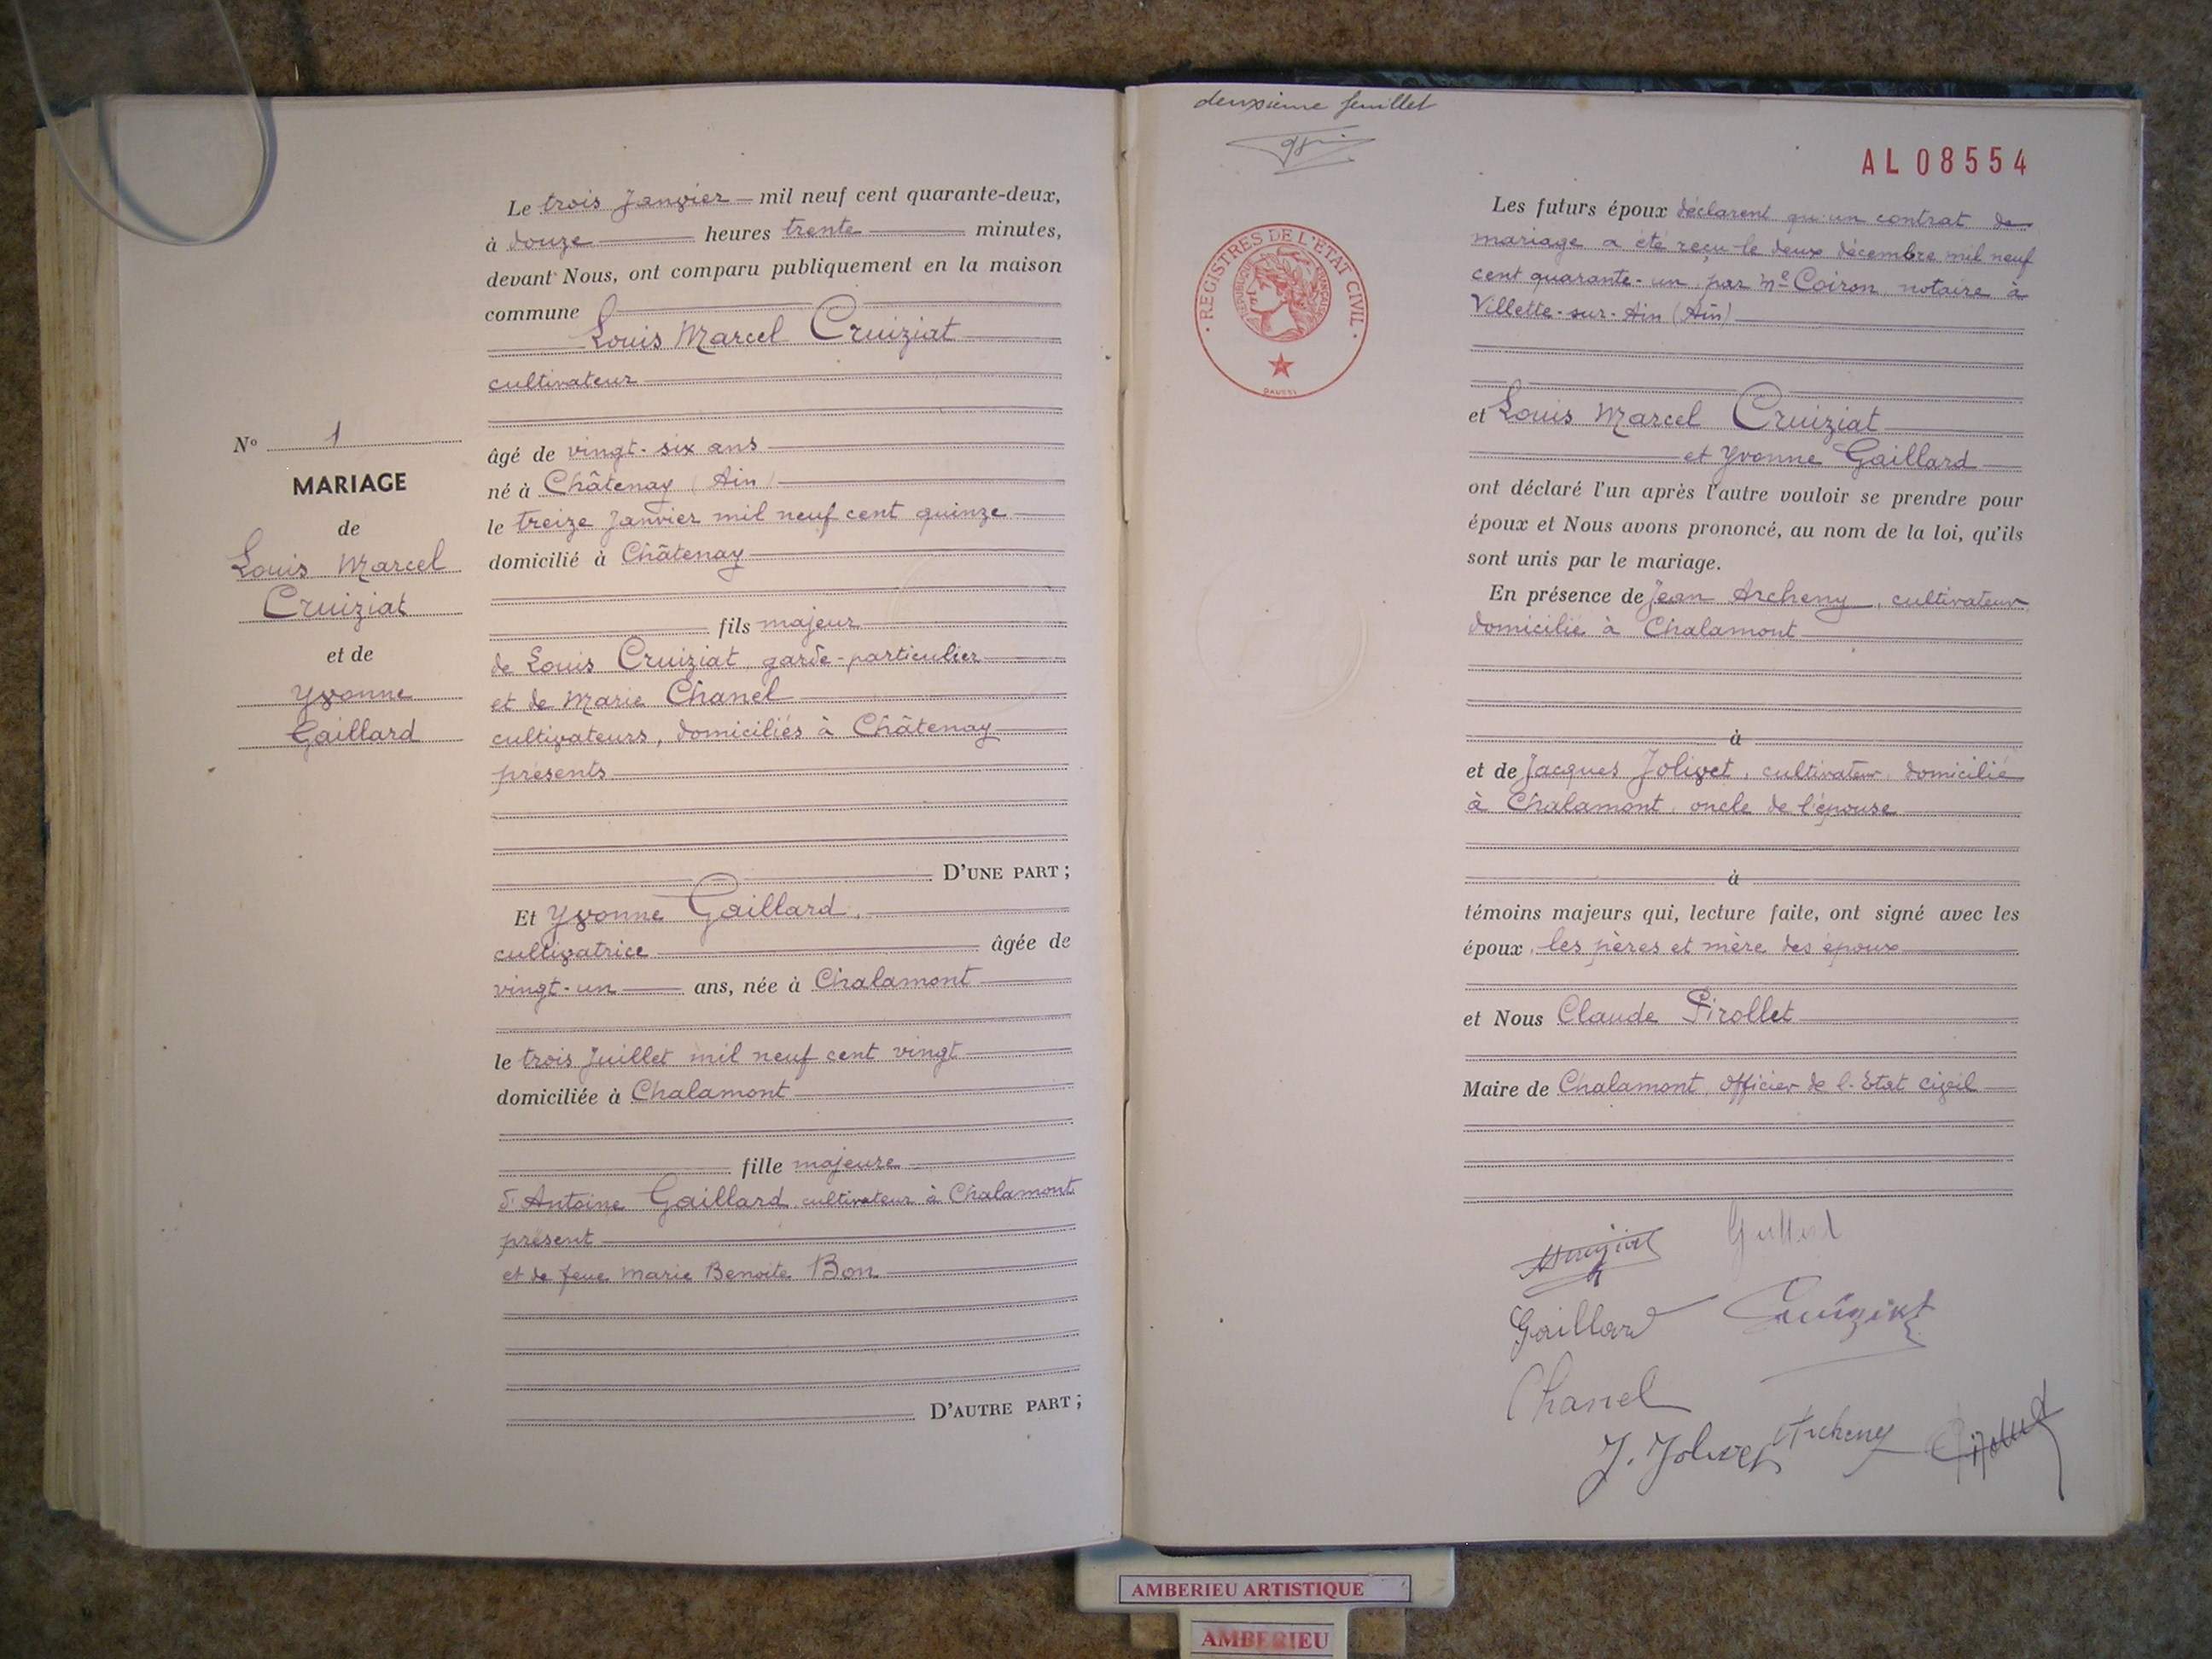 N° 1
MARIAGE
de
Louis Marcel
Cruiziat
et de
Yvonne
Gaillard
Le trois Janvier mil neuf cent quarante-deux,
à douze heures trente minutes,
devant Nous, ont comparu publiquement en la maison
commune
Louis Marcel Cruiziat
cultivateur
âgé de vingt-six ans
né à Châtenay (Ain)
le treize Janvier mil neuf cent quinze
domicilié à Châtenay
fils majeur
de Louis Cruiziat, garde-particulier
et de Marie Chanel
cultivateurs, domiciliés à Châtenay
présents
D'UNE PART ;
Et Yvonne Gaillard,
cultivatrice âgée de
vingt-un ans, née à Chalamont
le trois Juillet mil neuf cent vingt
domiciliée à Chalamont
fille majeure
d'Antoine Gaillard, cultivateur à Chalamont
présent
et de feue Marie Benoite Bon
D'AUTRE PART ;
deuxième feuillet
AL 08554
REGISTRES DE L'ÉTAT CIVIL
RÉPUBLIQUE FRANÇAISE
Les futurs époux déclarent qu'un contrat de
mariage a été reçu le deux décembre mil neuf
cent quarante-un, par Me Coiron, notaire à
Villette-sur-Ain (Ain)
et Louis Marcel Cruiziat
et Yvonne Gaillard
ont déclaré l'un après l'autre vouloir se prendre pour
époux et Nous avons prononcé, au nom de la loi, qu'ils
sont unis par le mariage.
En présence de Jean Archeny, cultivateur,
domicilié à Chalamont
à
et de Jacques Jolivet, cultivateur, domicilié
à Chalamont, oncle de l'épouse
à
témoins majeurs qui, lecture faite, ont signé avec les
époux, les pères et mère des époux
et Nous Claude Pirollet
Maire de Chalamont, officier de l'Etat civil
Cruiziat Gaillard
Gaillard Cruiziat
Chanel
J. Jolivet Archeny
AMBERIEU ARTISTIQUE
AMBERIEU